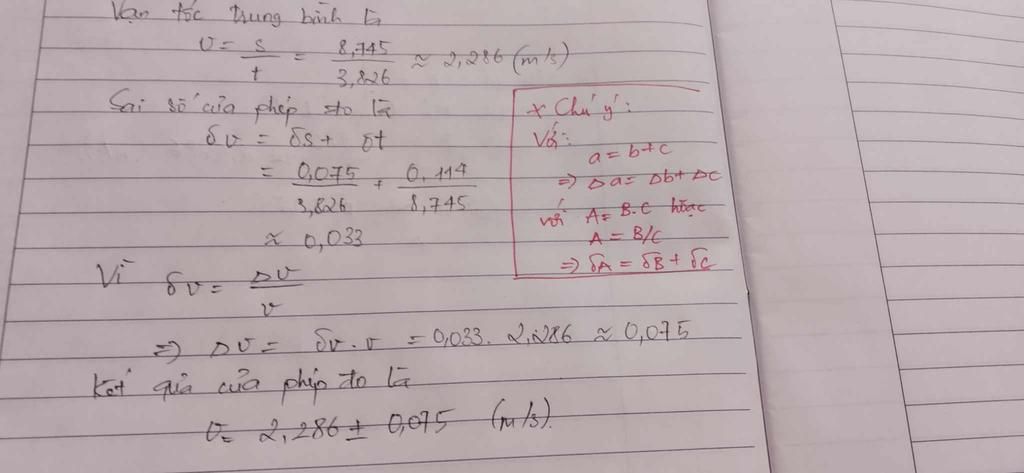 Vận tốc trung bình là
v = s/t = 8,745/3,826 ≈ 2,286 (m/s)
Sai số của phép đo là
δv = δs + δt
= 0,075/3,826 + 0,114/8,745
≈ 0,033
Vì δv = Δv/v
=> Δv = δv.v = 0,033. 2,286 ≈ 0,075
Kết quả của phép đo là
v = 2,286 ± 0,075 (m/s).
* Chú ý:
Với:
a = b+c
=> Δa = Δb + Δc
với A = B.C hoặc
A = B/C
=> δA = δB + δC